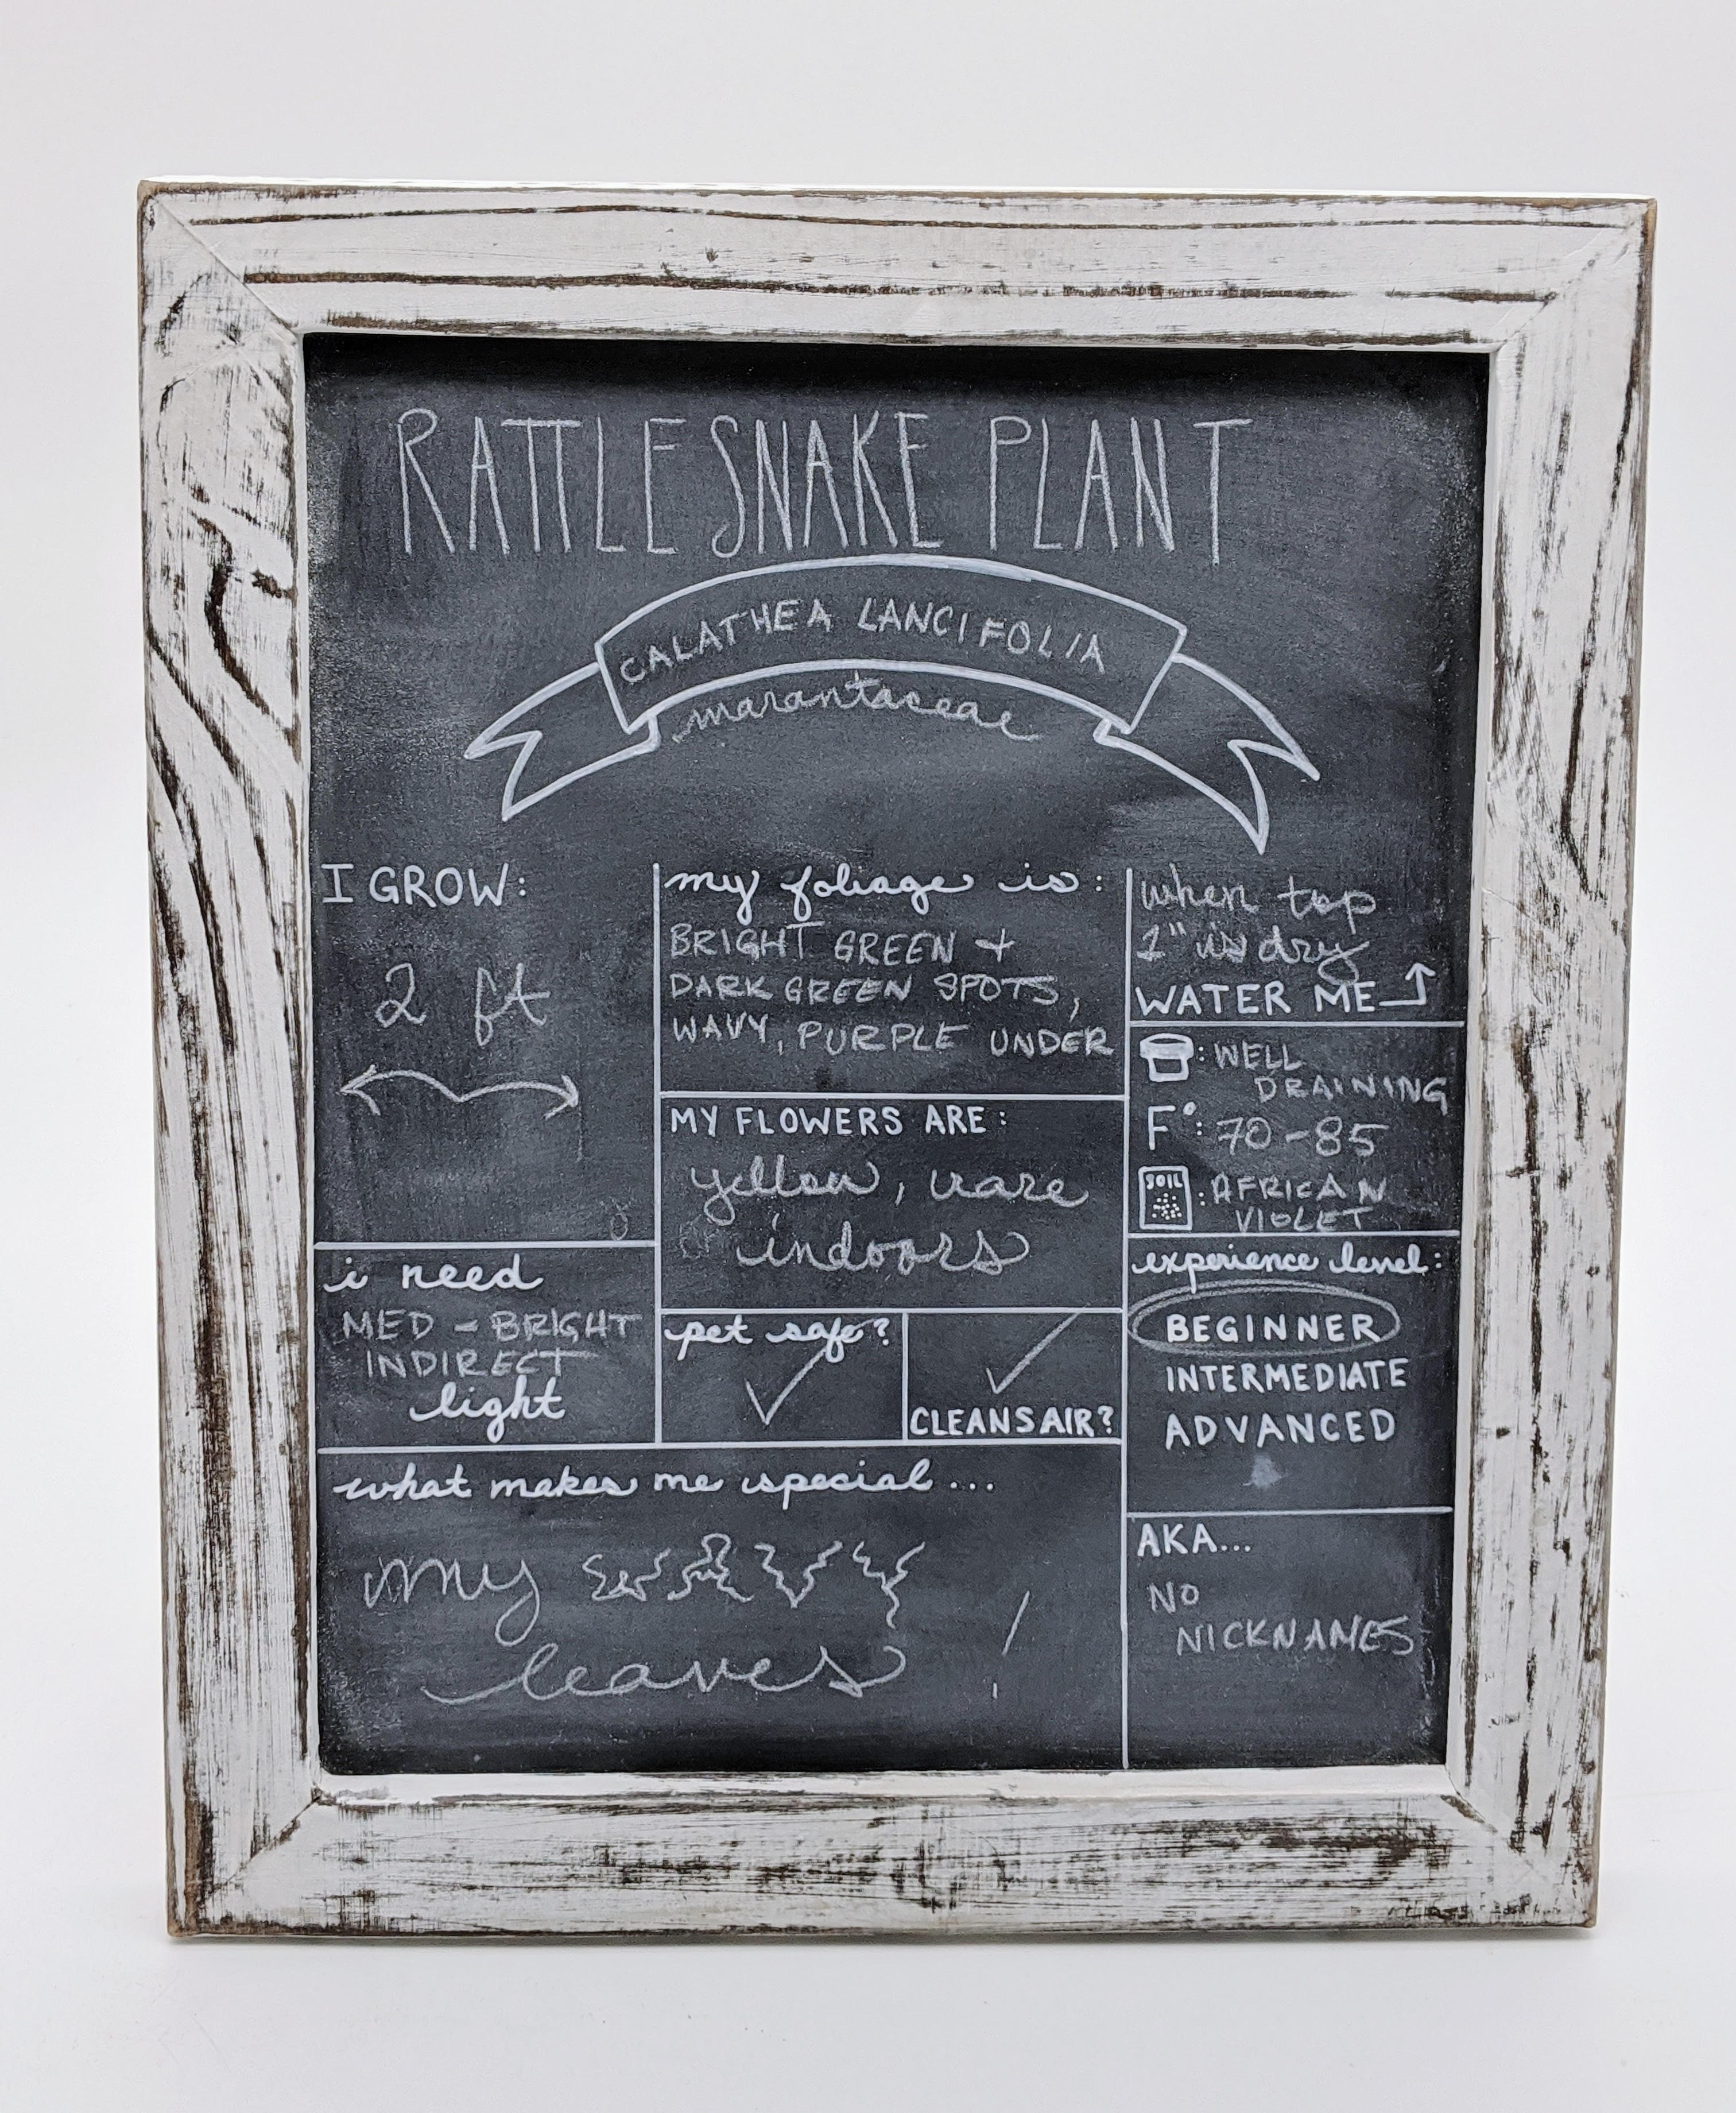 RATTLESNAKE PLANT
CALATHEA LANCIFOLIA
marantaceae
I GROW:
2 ft
i need
MED - BRIGHT
INDIRECT
light
my foliage is:
BRIGHT GREEN +
DARK GREEN SPOTS,
WAVY, PURPLE UNDER
MY FLOWERS ARE:
yellow, rare
indoors
pet safe?
CLEANS AIR?
what makes me special...
my WAVY
leaves
when top
1" is dry
WATER ME
: WELL
DRAINING
F°: 70-85
SOIL : AFRICAN
VIOLET
experience level:
BEGINNER
INTERMEDIATE
ADVANCED
AKA...
NO
NICKNAMES